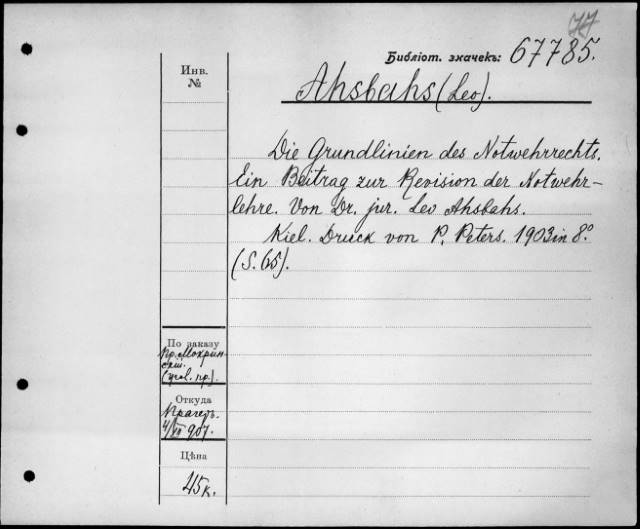 77
Библіот. значекъ: 67785.
Инв.
№
Ahsbahs (Leo).
Die Grundlinien des Notwehrrechts.
Ein Beitrag zur Revision der Notwehr-
lehre. Von Dr. jur. Leo Ahsbahs.
Kiel. Druck von P. Peters. 1903 in 8.º
(S. 65).
По заказу
Пр. Мокрин-
скаго
(угол. пр.).
Откуда
Прагеръ.
4/VII 907.
Цѣна
45 к.